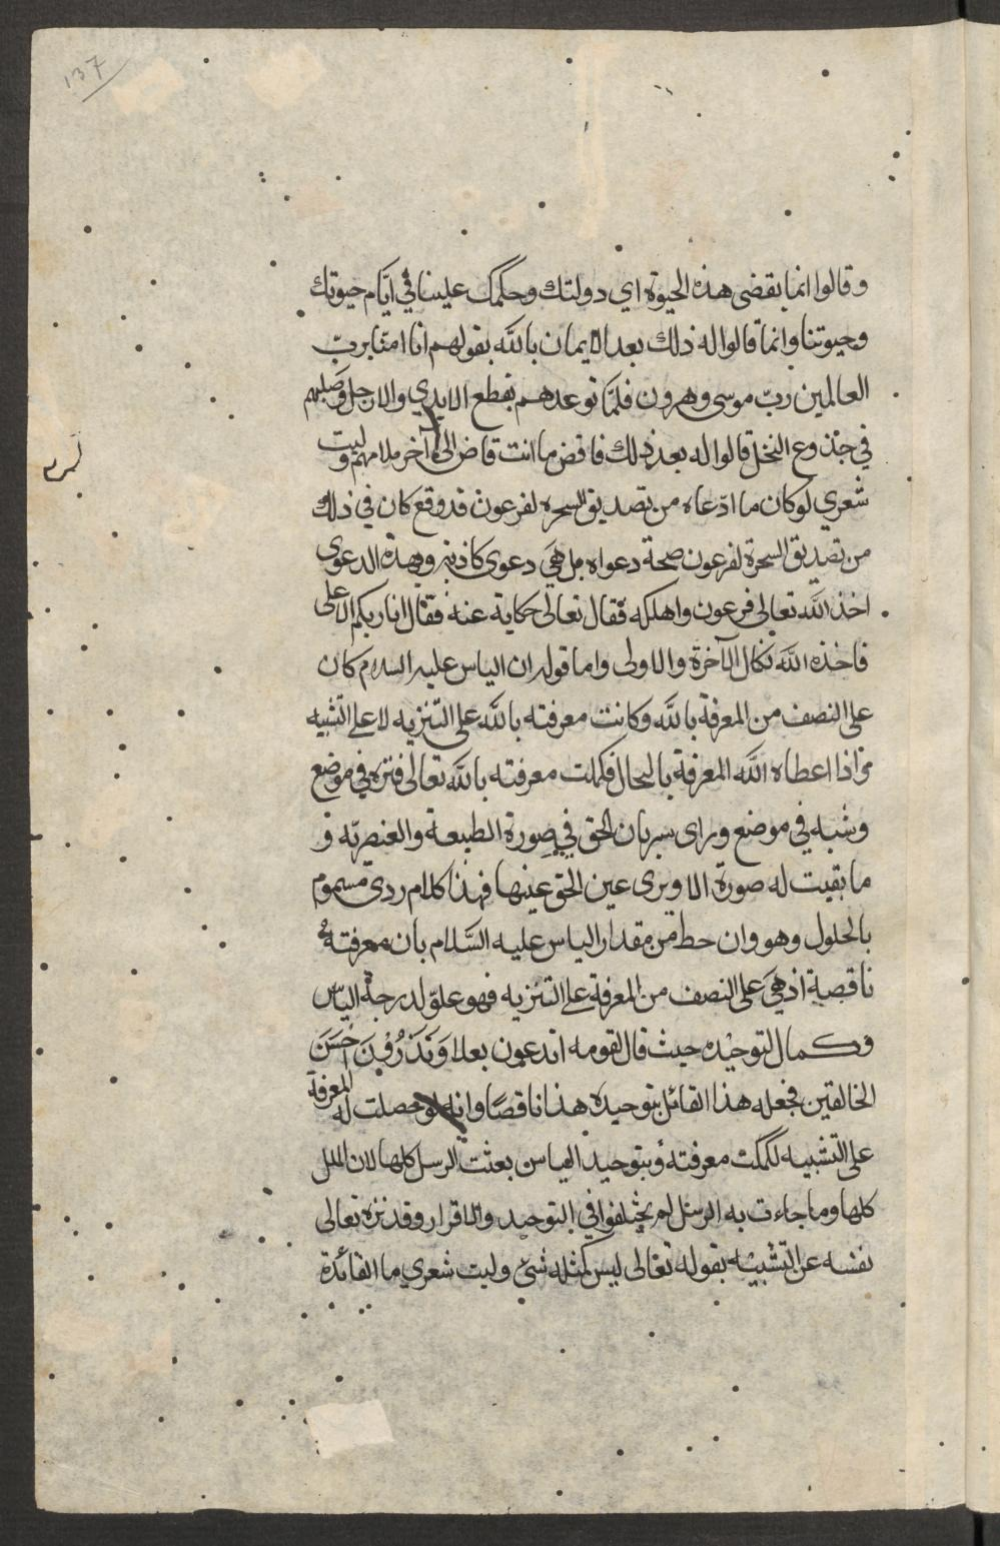 137
وقالوا انما يقضى هذه الحيوة اي دولتك وحكمك علينا في ايّام حيوتك
وحيوتنا وانما قالوا له ذلك بعد الايمان بالله بقولهم انا امنّا بربّ
العالمين ربّ موسى وهرون فلمّا توعدهم بقطع الايدي والارجل وصلبهم
في جذوع النخل قالوا له بعد ذلك فاقض ما انت قاض الى آخر ملامهم وليت
شعري لو كان ما ادّعاه من تصديق السحره لفرعون قد وقع كان في ذلك
من تصديق السحرة لفرعون صحة دعواه بل هي دعوى كاذبة وهذه الدعوى
اخذ الله تعالى فرعون واهلكه فقال تعالى حكاية عنه فقال انا ربكم الاعلى
فاخذه الله نكال الآخرة والاولى واما قوله ان الياس عليه السلام كان
على النصف من المعرفة بالله وكانت معرفته بالله على التنزيه لا على التشبيه
واذا اعطاه الله المعرفة بالتجال فكملت معرفته بالله تعالى فنزه في موضع
وشبه في موضع وراى سريان الحق في صورة الطبيعة والعنصريّه و
ما بقيت له صورة الا ويرى عين الحق عينها فهذا كلام ردى مسموم
بالحلول وهو وان حط من مقدار الياس عليه السّلام بان معرفته
ناقصة اذ هي على النصف من المعرفة على التنزيه فهو علوّ لدرجة الياس
وكمال التوحيده حيث قال لقومه اتدعون بعلا وَتَذَرُونَ اَحْسَنَ
الخالقين فجعله هذا القائل بتوحيده هذا ناقصًا وانه لو حصلت له المعرفة
على التشبيه لكملت معرفته وبتوحيد الياس بعثت الرسل كلها لان الملل
كلها وما جاءت به الرسل لم يختلفوا في التوحيد والاقرار وقد نزه تعالى
نفسه عن التشبيه بقوله تعالى ليس كمثله شيء وليت شعري ما الفائدة